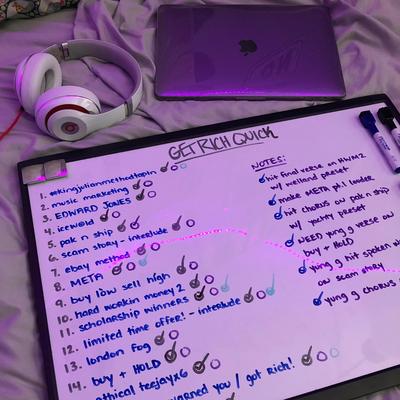 GET RICH QUICK
1. #kingjulianmethodtapin
2. music marketing
3. EDWARD JONES
4. icewow
5. pak n ship
6. scam story - interlude
7. ebay method
8. META
9. buy low sell high
10. hard workin money 2
11. scholarship winners
12. limited time offer! - interlude
13. london fog
14. buy + HOLD
ethical teejayx6
warned you / got rich!
NOTES:
hit final verse on HWM2
w/ melland preset
make META pt.1 louder
hit chorus on pak n ship
w/ yachty preset
WEED yung g verse on
buy + HOLD
yung g hit spoken
on scam story
yung g chorus